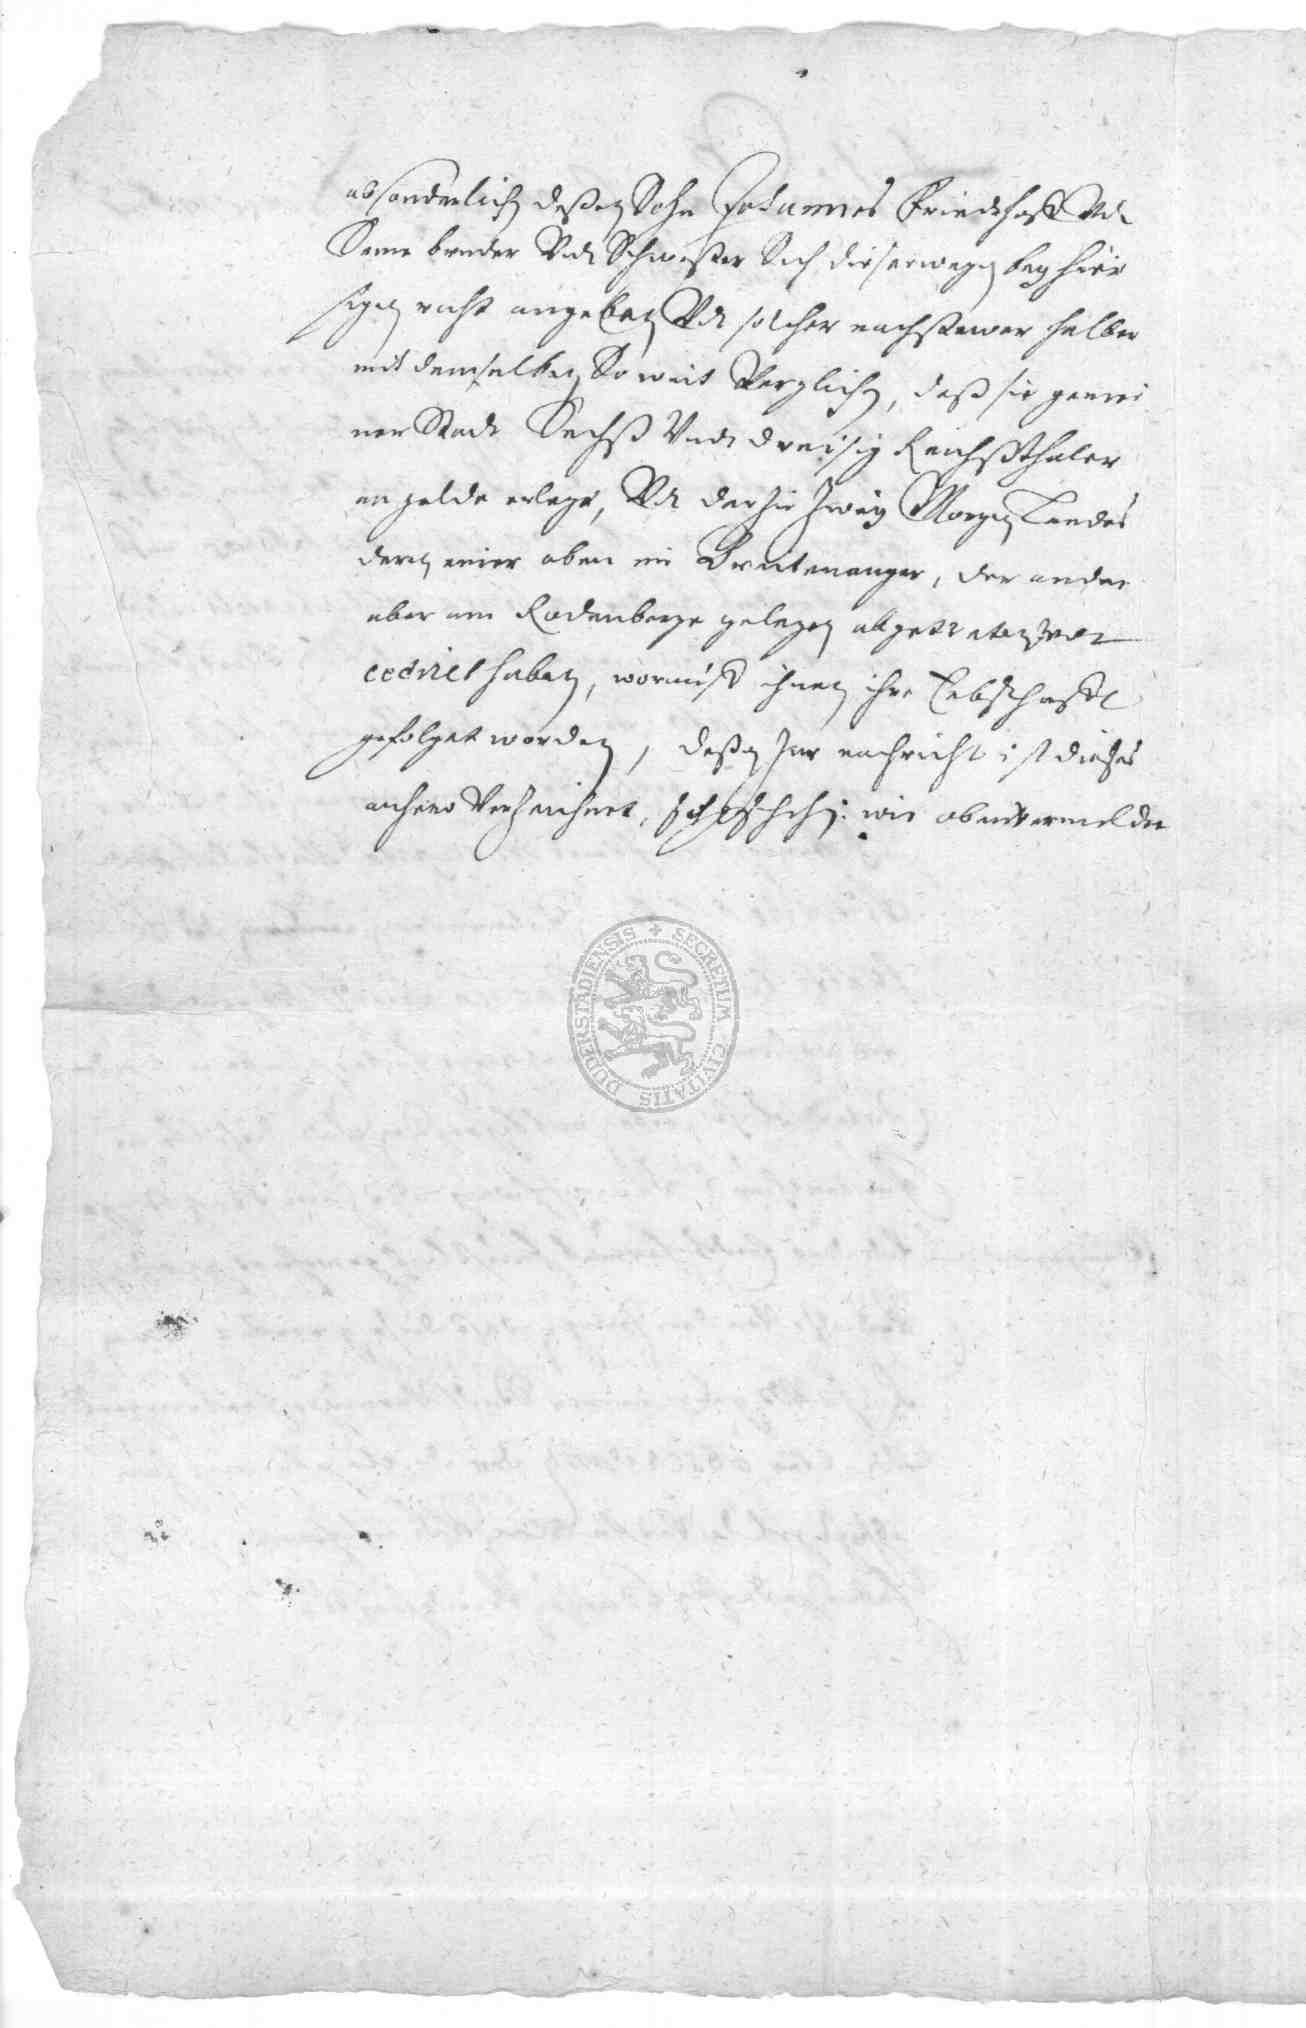 absonderlich deßen Sohn Johannes Friedthoff Vndt
Seine bruder Vndt Schwester Sich dieserwegen bey hie
sigen raht angeben Vndt solcher nachstewer halber
mit demselben So weit Verglichen, daß sie gemei
ner Stadt Sechß Vndt dreisig Reichßthaler
an gelde erlegt, Vndt darzu zwey Morgen Landes
deren einer oben im anger, der ander
aber am Rodenberge gelegen abgetretten Vndt
cediret haben, wormitt ihnen ihre Erbschafft
gefolget worden, deßen zur nachricht ist dießes
anhero Verzeichnet, wie obenvermeldet
DUDERSTADIENSIS + SECRETUM CIVITATIS